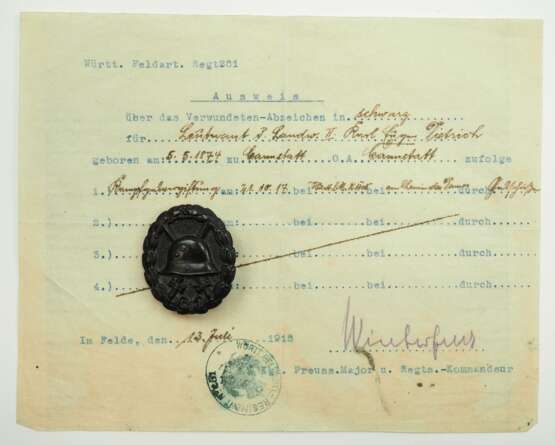 Württ. Feldart. Regt 261
Ausweis
über das Verwundeten-Abzeichen in schwarz
für Leutnant d. Landw. II Karl Eugen Dietrich
geboren am: 5.5.1874 zu Cannstatt O.A. Cannstatt zufolge
1.) Kampfgasvergiftung am: 21.10.17. bei durch Gasschießen
2.) am: bei bei durch
3.) bei bei durch
4.) bei bei durch
Im Felde, den 13. Juli 1918
Winterfeld
Kgl. Preuss. Major u. Regts.-Kommandeur